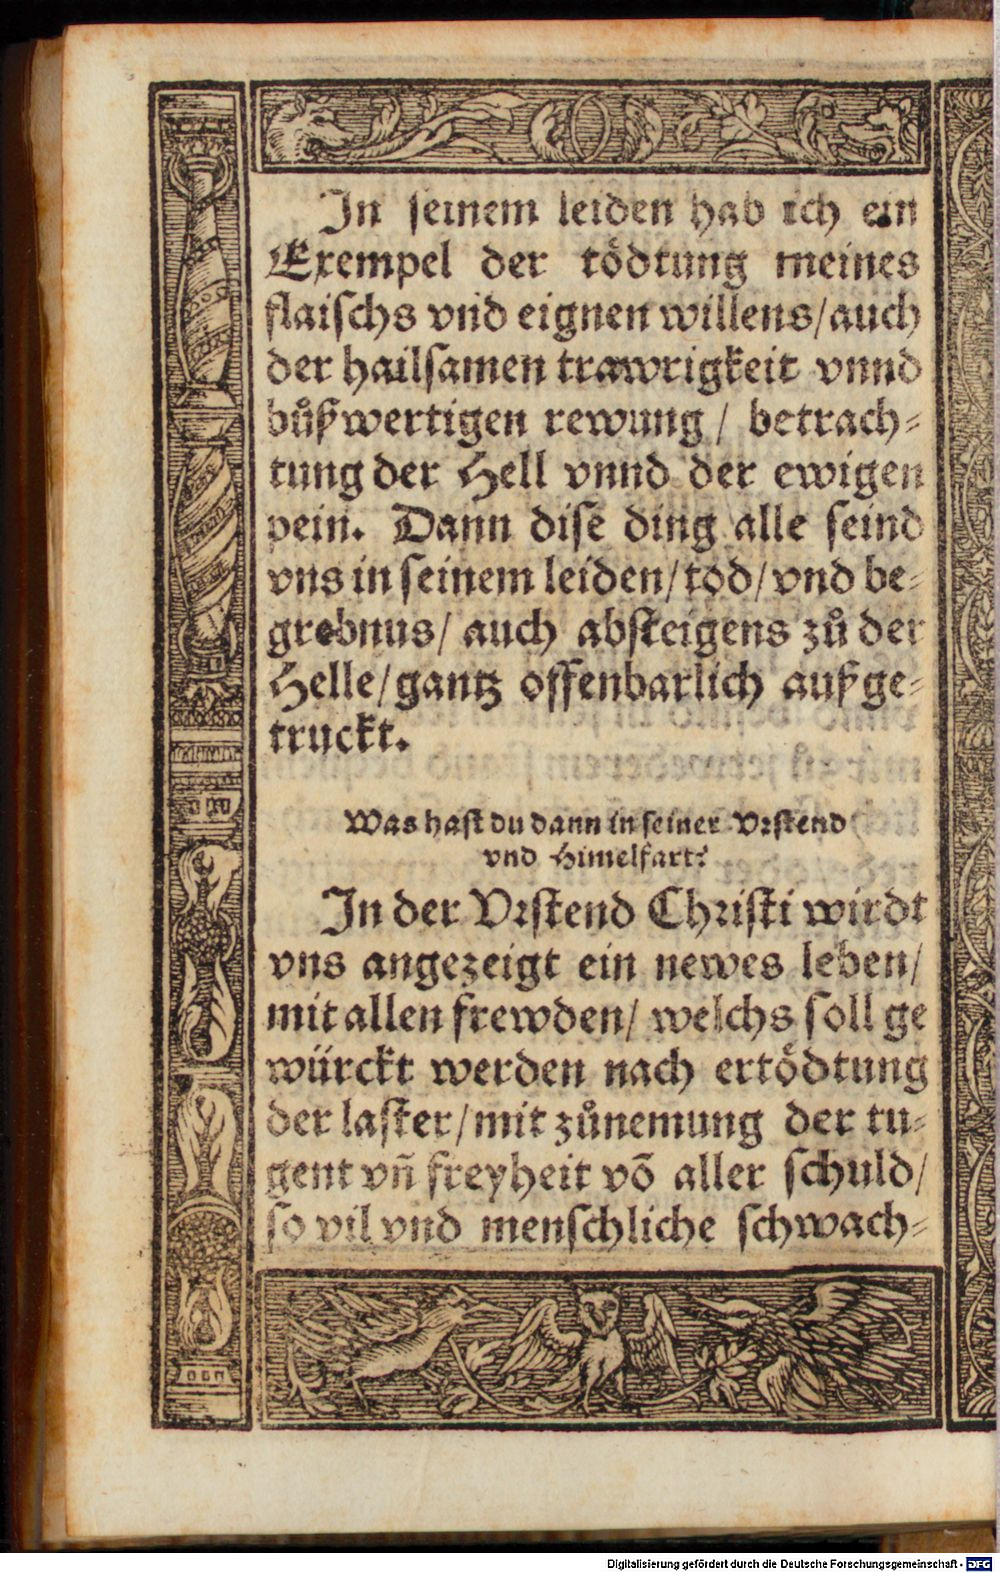 In seinem leiden hab ich ein
Exempel der tödtung meines
flaiſchs vnd eignen willens/auch
der hailſamen trawrigkeit vnnd
bůßwertigen rewung/ betrach⸗
tung der Hell vnnd der ewigen
pein. Dann diſe ding alle ſeind
vns in ſeinem leiden/tod/vnd be⸗
grebnus/ auch abſteigens zů der
Helle/gantz offenbarlich außge⸗
truckt.
Was haſt du dann in ſeiner Vꝛſtend
vnd Himelfart?
In der Vꝛſtend Chꝛiſti wirdt
vns angezeigt ein newes leben/
mit allen frewden/ welchs ſoll ge
würckt werden nach ertödtung
der laſter/mit zůnemung der tu⸗
gent vñ freyheit võ aller ſchuld/
ſo vil vnd menſchliche ſchwach⸗
Digitalisierung gefördert durch die Deutsche Forschungsgemeinschaft - DFG